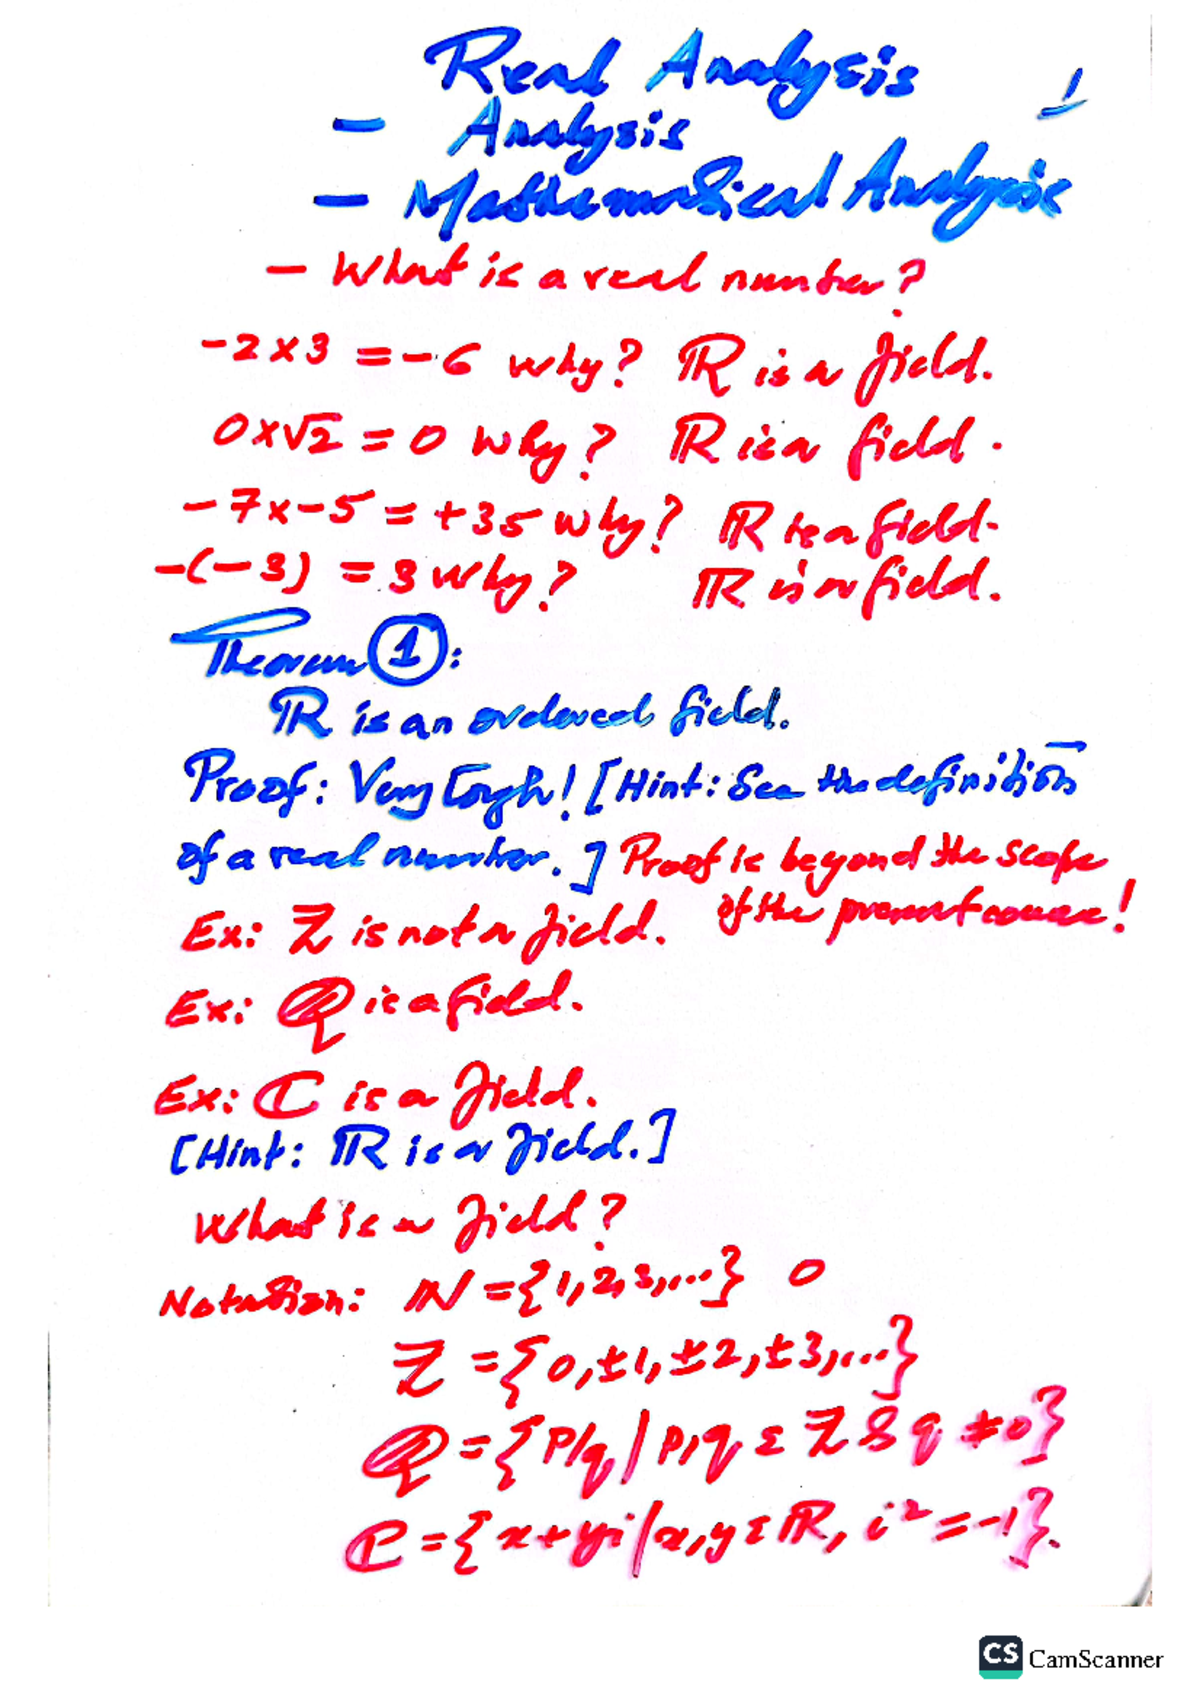 Real Analysis
1
- Analysis
- Mathematical Analysis
- What is a real number?
-2×3 = -6 why? ℝ is a field.
0×√2 = 0 why? ℝ is a field.
-7×-5 = +35 why? ℝ is a field.
-(-3) = 3 why? ℝ is a field.
Theorem ①:
ℝ is an ordered field.
Proof: Very Tough! [Hint: See the definition
of a real number.] Proof is beyond the scope
of the present course!
Ex: ℤ is not a field.
Ex: ℚ is a field.
Ex: ℂ is a field.
[Hint: ℝ is a field.]
What is a field?
Notation: ℕ = {1,2,3,...} 0
ℤ = {0,±1,±2,±3,...}
ℚ = {p/q | p,q ∈ ℤ & q ≠ 0}
ℂ = {x+yi | x,y ∈ ℝ, i² = -1}.
CS CamScanner